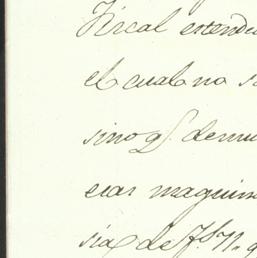 Fiscal estende
el cual no s
sino q. de mu
cias maquin
sia de